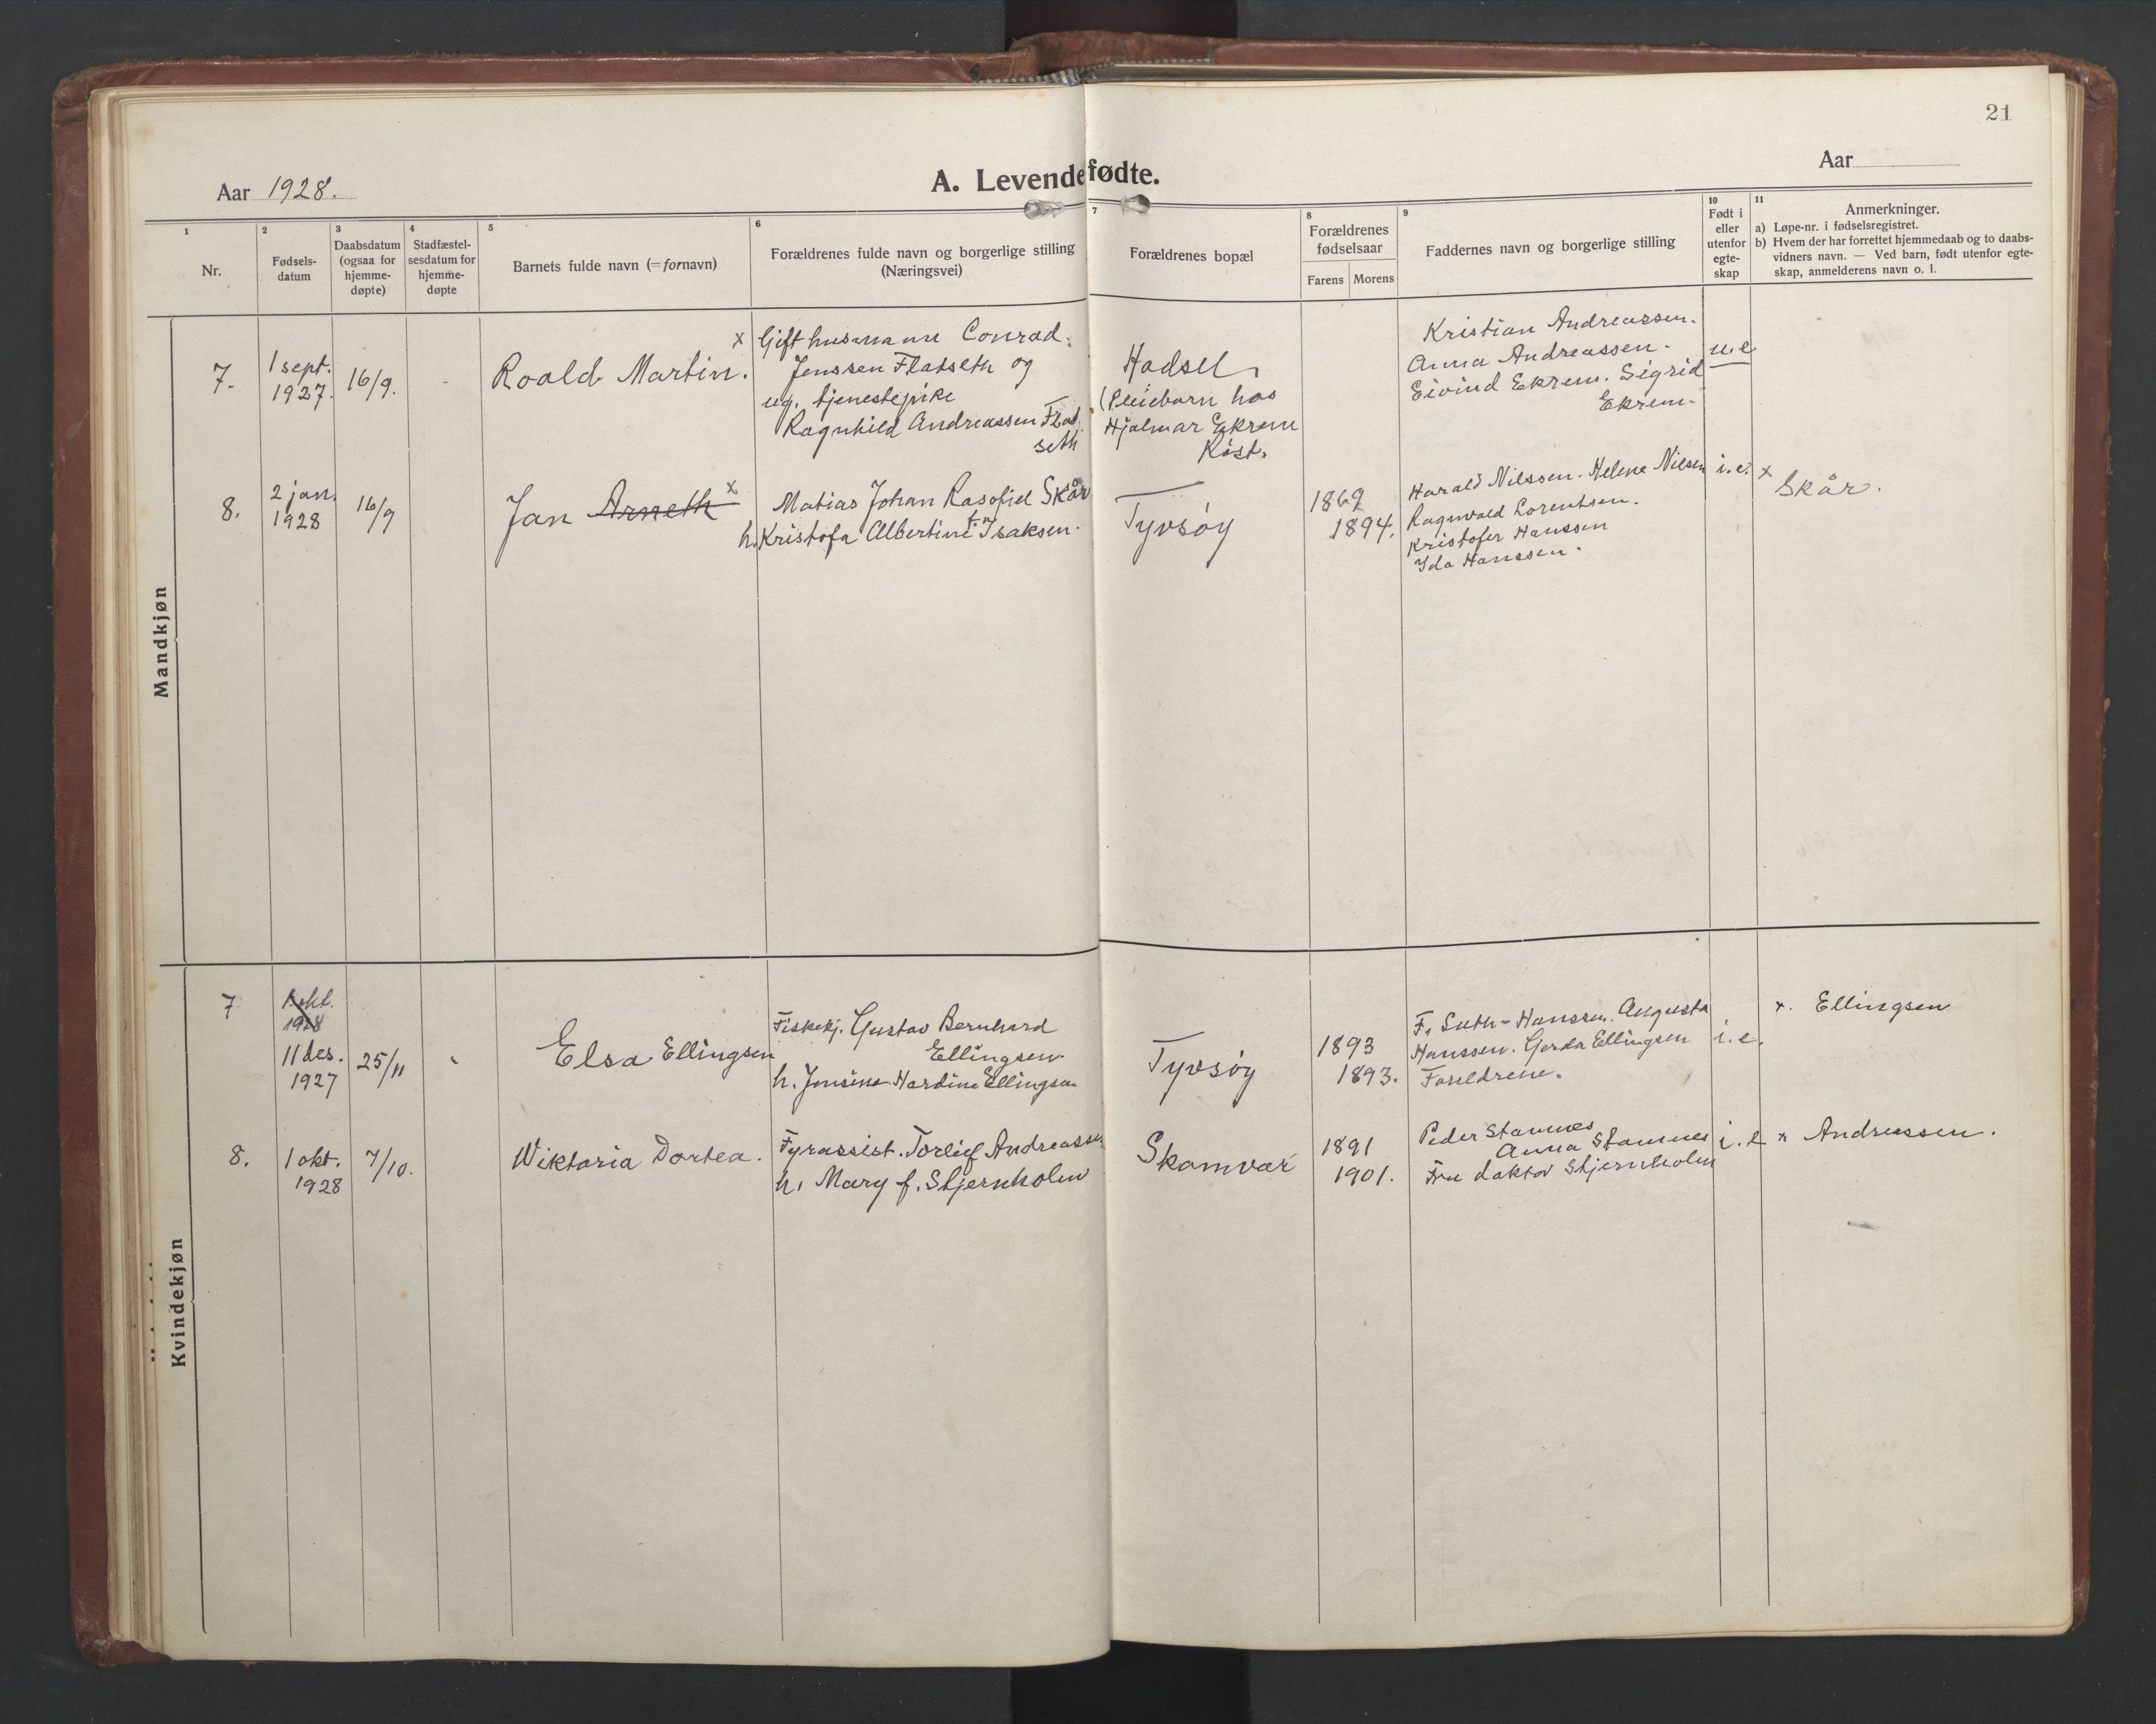 21
Aar 1928.
A. Levendefødte.
Aar
1
2
3
4
5
6
7
8
9
10
11
Nr.
Fødsels-
datum
Daabsdatum
(ogsaa for
hjemme-
døpte)
Stadfæstel-
sesdatum for
hjemme-
døpte
Barnets fulde navn (=fornavn)
Forældrenes fulde navn og borgerlige stilling
(Næringsvei)
Forældrenes bopæl
Forældrenes
fødselsaar
Farens Morens
Faddernes navn og borgerlige stilling
Født i
eller
utenfor
egte-
skap
Anmerkninger.
a) Løpe-nr. i fødselsregistret.
b) Hvem der har forrettet hjemmedaab og to daabs-
vidners navn. — Ved barn, født utenfor egte-
skap, anmelderens navn o. l.
Mandkjøn
7.
1 sept.
1927.
16/9.
-
Roald Martin.
x Gift husmann Conrad
Jenssen Flatseth og
ug. tjenestepike
Ragnhild Andreassen Flat
seth
Hadsel
(Pleiebarn hos
Hjalmar Ekrem
Røst.
Kristian Andreassen.
Anna Andreassen.
Eivind Ekrem. Sigrid
Ekrem.
u.e
8.
2 jan.
1928
16/9
Jan Arneth x
Matias Johan Rasofiel Skår
h. Kristofa Albertine f. Isaksen.
Tyvsøy
1869
1894.
Harald Nilssen. Helene Nilsen
Ragnvald Lorentsen.
Kristofer Hanssen
Ida Hanssen.
i.e.
x Skår.
Kvindekjøn
7
1 okt.
1928
11 des.
1927
25/11
Elsa Ellingsen
Fiskekj. Gustav Bernhard
Ellingsen
h. Jensine Hardine Ellingsen
Tyvsøy
1893
1893.
F. Luth-Hanssen. Augusta
Hanssen. Gerda Ellingsen
Foreldrene.
i.e.
x. Ellingsen
8.
1 okt.
1928
7/10.
Wiktoria Dortea.
Fyrassist. Torleif Andreassen
h. Mary f. Stjernholm
Skomvær
1891
1901.
Peder Stamnes
Anna Stamnes
Fru doktor Stjernholm
i.e
x Andreassen.